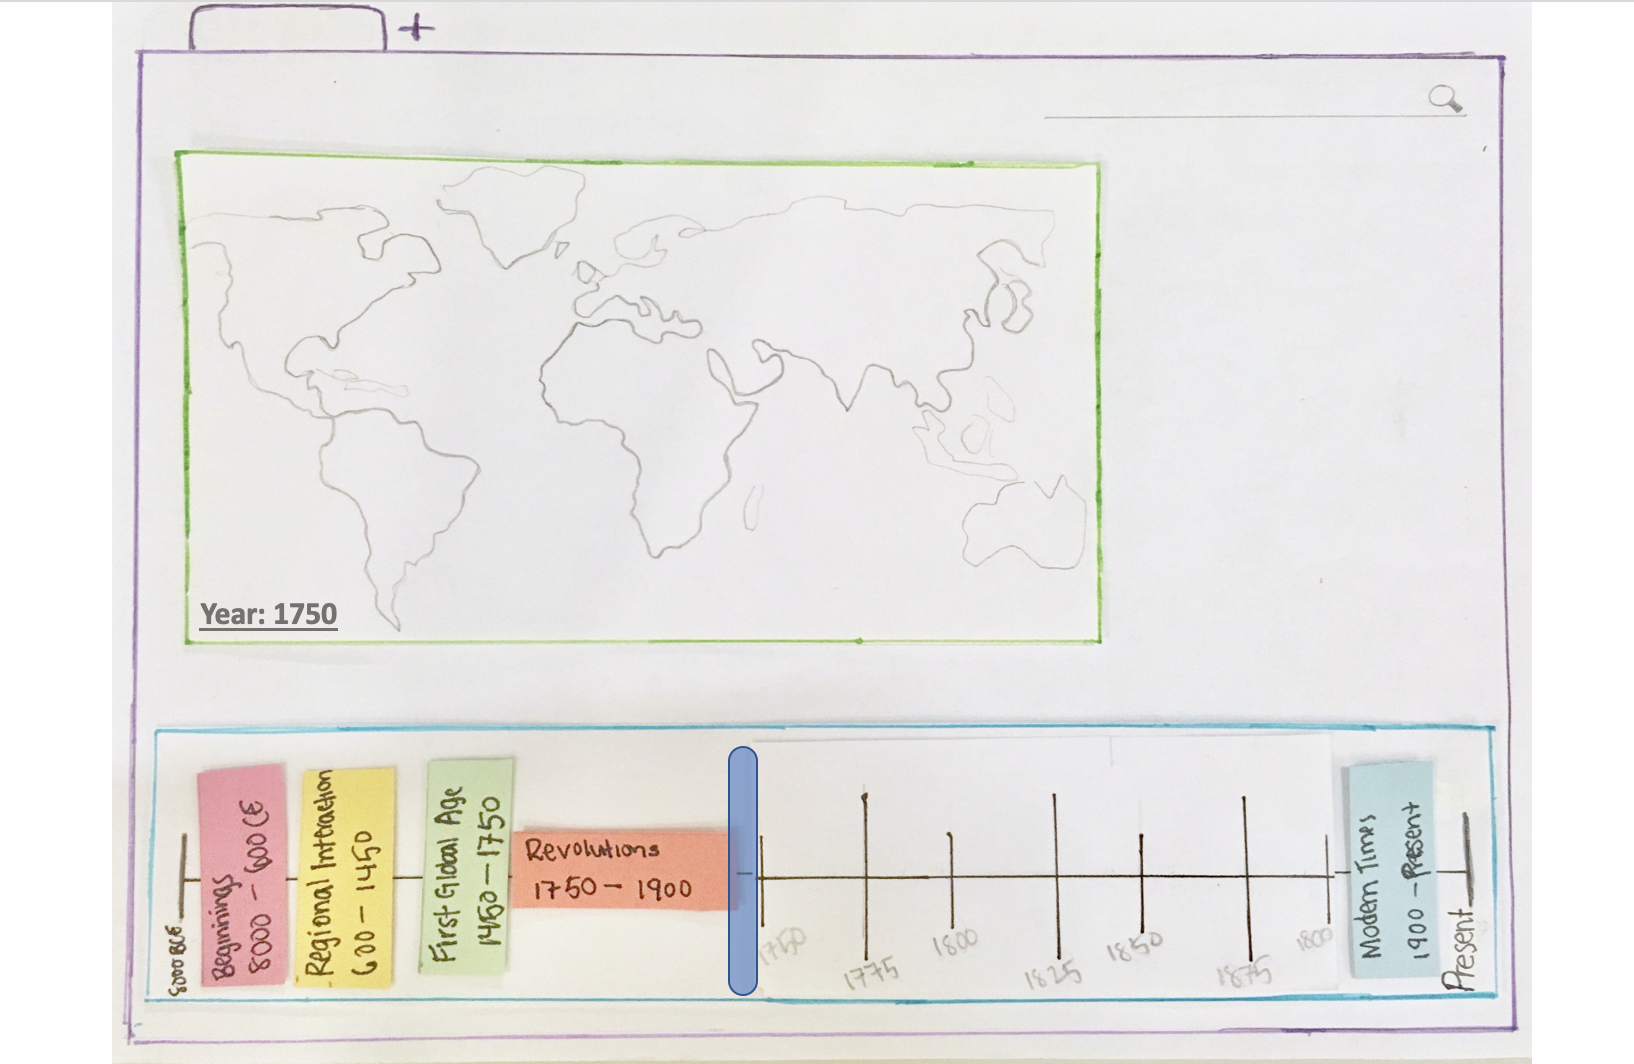 +
Year: 1750
8000 BCE
Beginnings
8000 - 600 CE
Regional Interaction
600 - 1450
First Global Age
1450 - 1750
Revolutions
1750 - 1900
1750
1775
1800
1825
1850
1875
1800
Modern Times
1900 - Present
Present